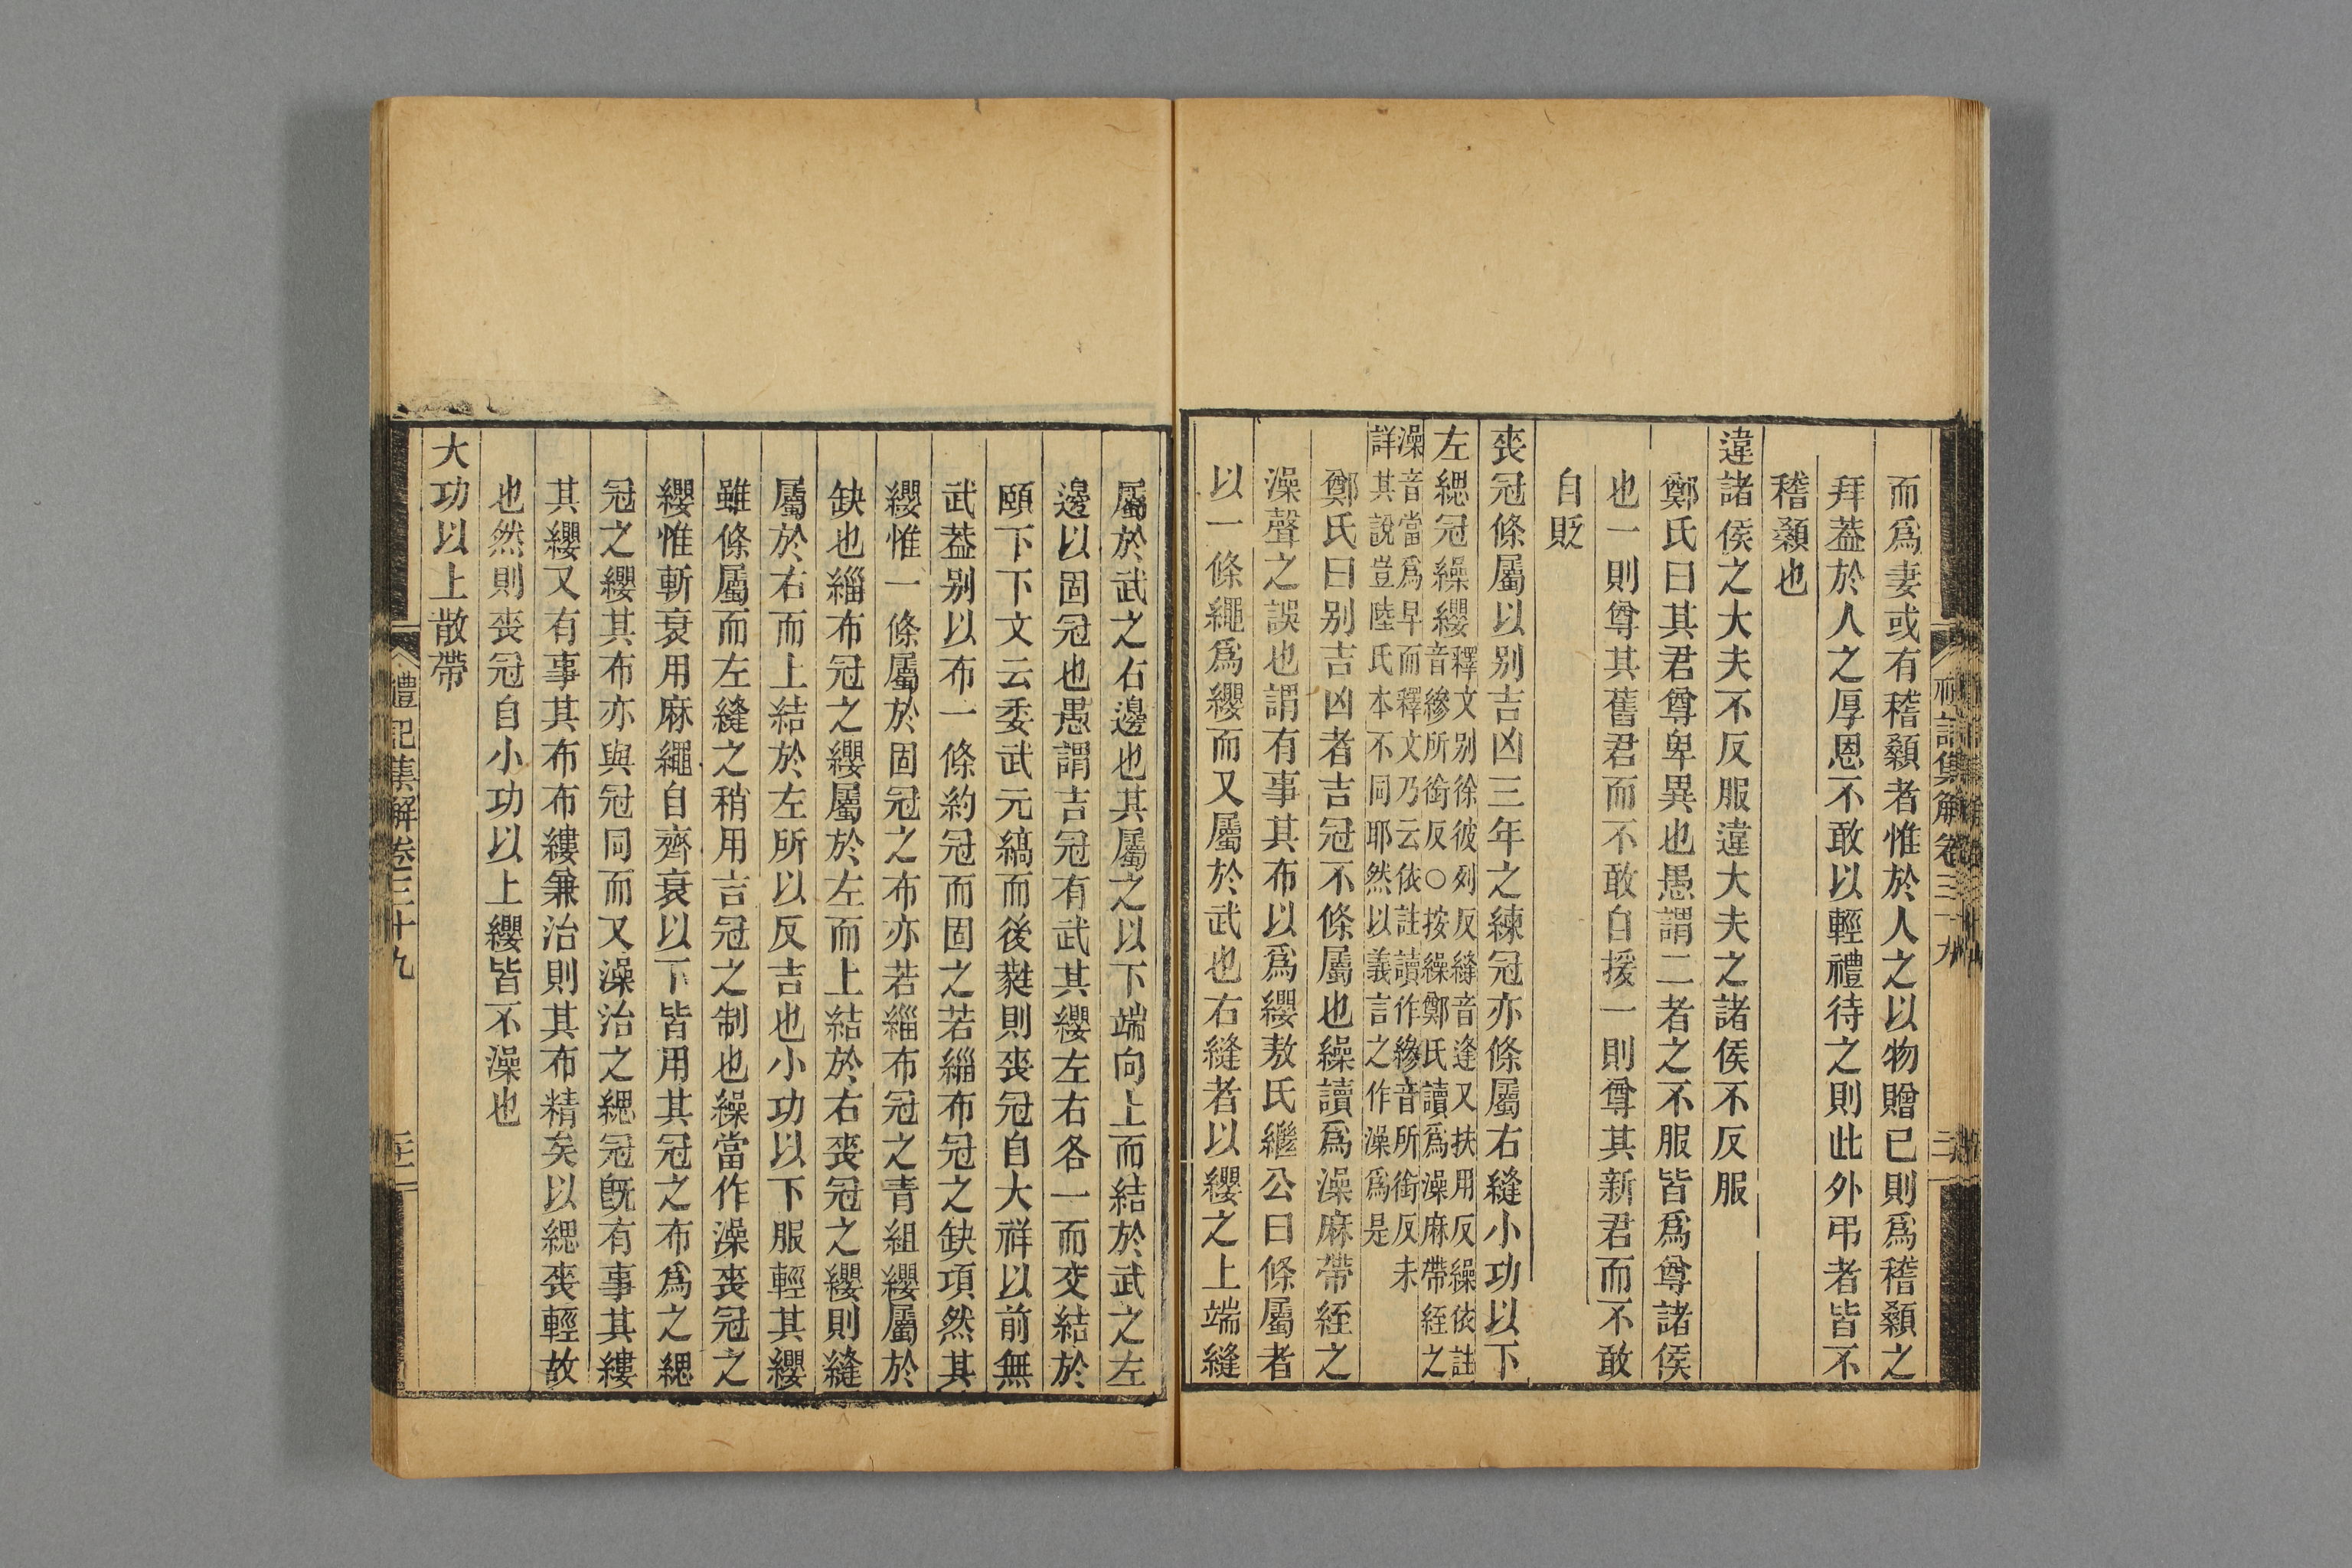 而爲妻或有稽顙者惟於人之以物贈已則爲稽顙之
拜葢於人之厚恩不敢以輕禮待之則此外弔者皆不
稽顙也
違諸侯之大夫不反服違大夫之諸侯不反服
鄭氏曰其君尊卑異也愚謂二者之不服皆爲尊諸侯
也一則尊其舊君而不敢自援一則尊其新君而不敢
自貶
喪冠條屬以别吉凶三年之練冠亦條屬右縫小功以下
左緦冠繰纓釋文别徐彼列反縫音逢又扶用反繰依註
音縿所銜反○按繰鄭氏讀爲澡麻帶絰之
澡音當爲早而釋文乃云依註讀作縿音所銜反未
詳其說豈陸氏本不同耶然以義言之作澡爲是
鄭氏曰别吉凶者吉冠不條屬也繰讀爲澡麻帶絰之
澡聲之誤也謂有事其布以爲纓敖氏繼公曰條屬者
以一條繩爲纓而又屬於武也右縫者以纓之上端縫
屬於武之右邊也其屬之以下端向上而結於武之左
邊以固冠也愚謂吉冠有武其纓左右各一而交結於
頤下下文云委武元縞而後蕤則喪冠自大祥以前無
武葢别以布一條約冠而固之若緇布冠之缺項然其
纓惟一條屬於固冠之布亦若緇布冠之青組纓屬於
缺也緇布冠之纓屬於左而上結於右喪冠之纓則縫
屬於右而上結於左所以反吉也小功以下服輕其纓
雖條屬而左縫之稍用吉冠之制也繰當作澡喪冠之
纓惟斬衰用麻繩自齊衰以下皆用其冠之布爲之緦
冠之纓其布亦與冠同而又澡治之緦冠旣有事其縷
其纓又有事其布布縷兼治則其布精矣以緦喪輕故
也然則喪冠自小功以上纓皆不澡也
大功以上散帶
禮記集解卷三十九